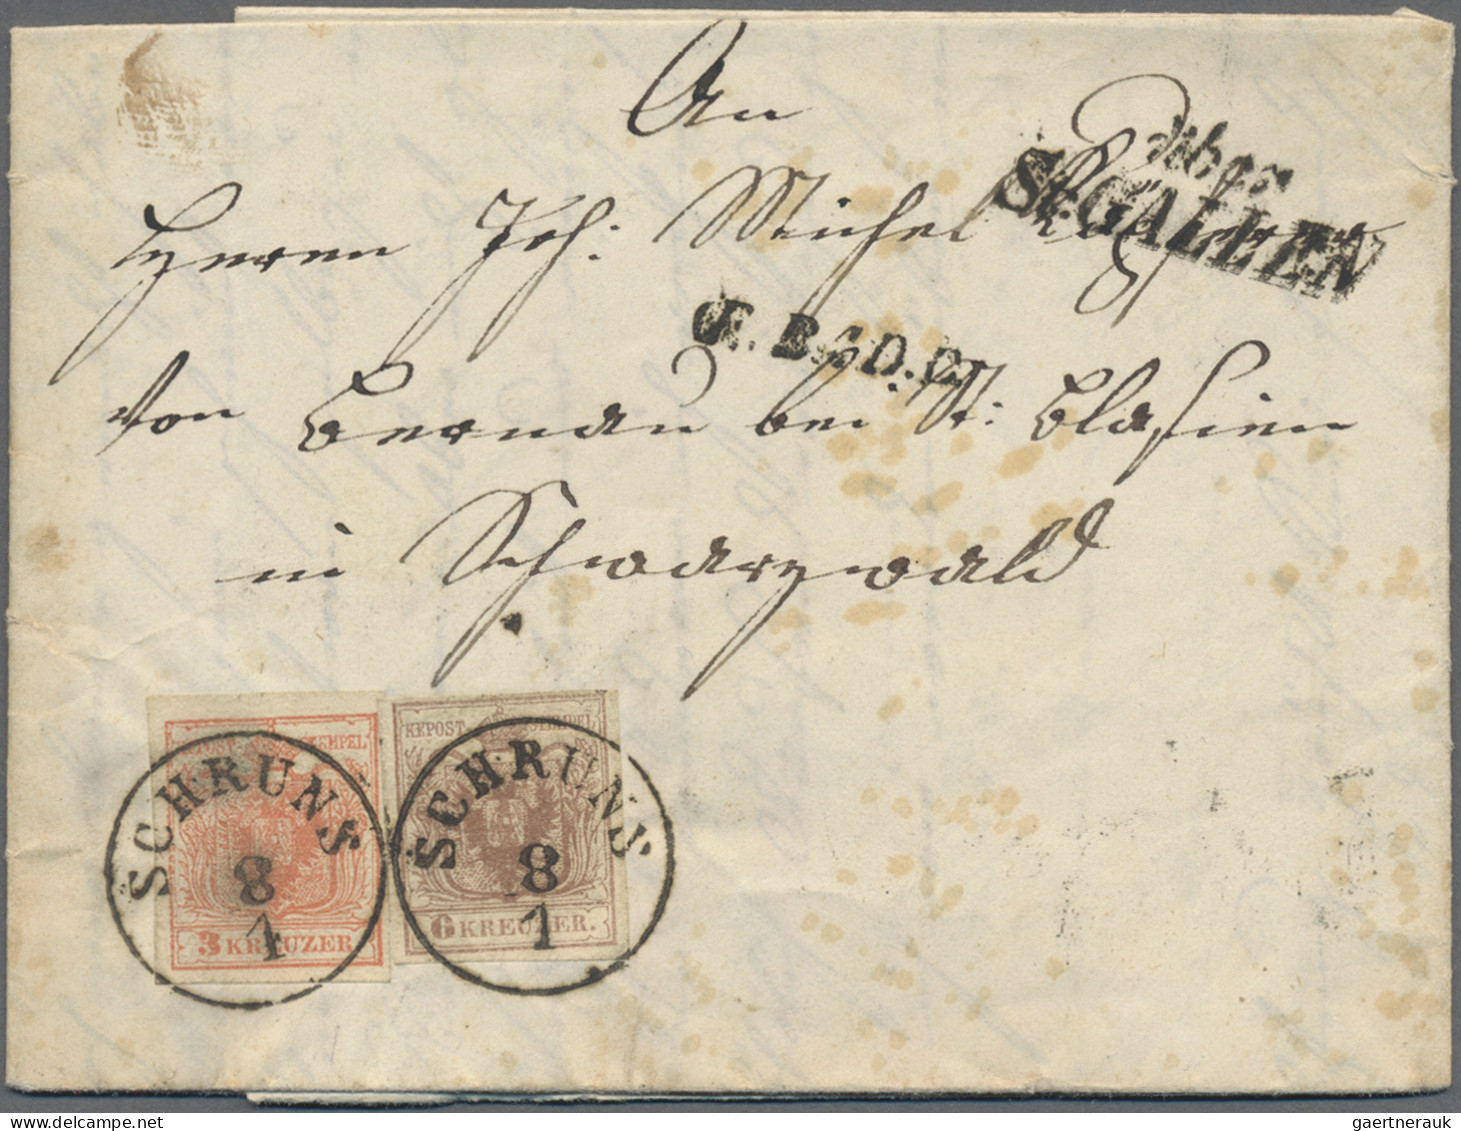 An
Herrn Joh: Michel
über
St. GALLEN
von Bernau bei St: Blasien
in Schwarzwald
KKPOST-STEMPEL
3 KREUZER
SCHRUNS
8
1
KKPOST-STEMPEL
6 KREUZER.
SCHRUNS
8
1
gaertnerauk